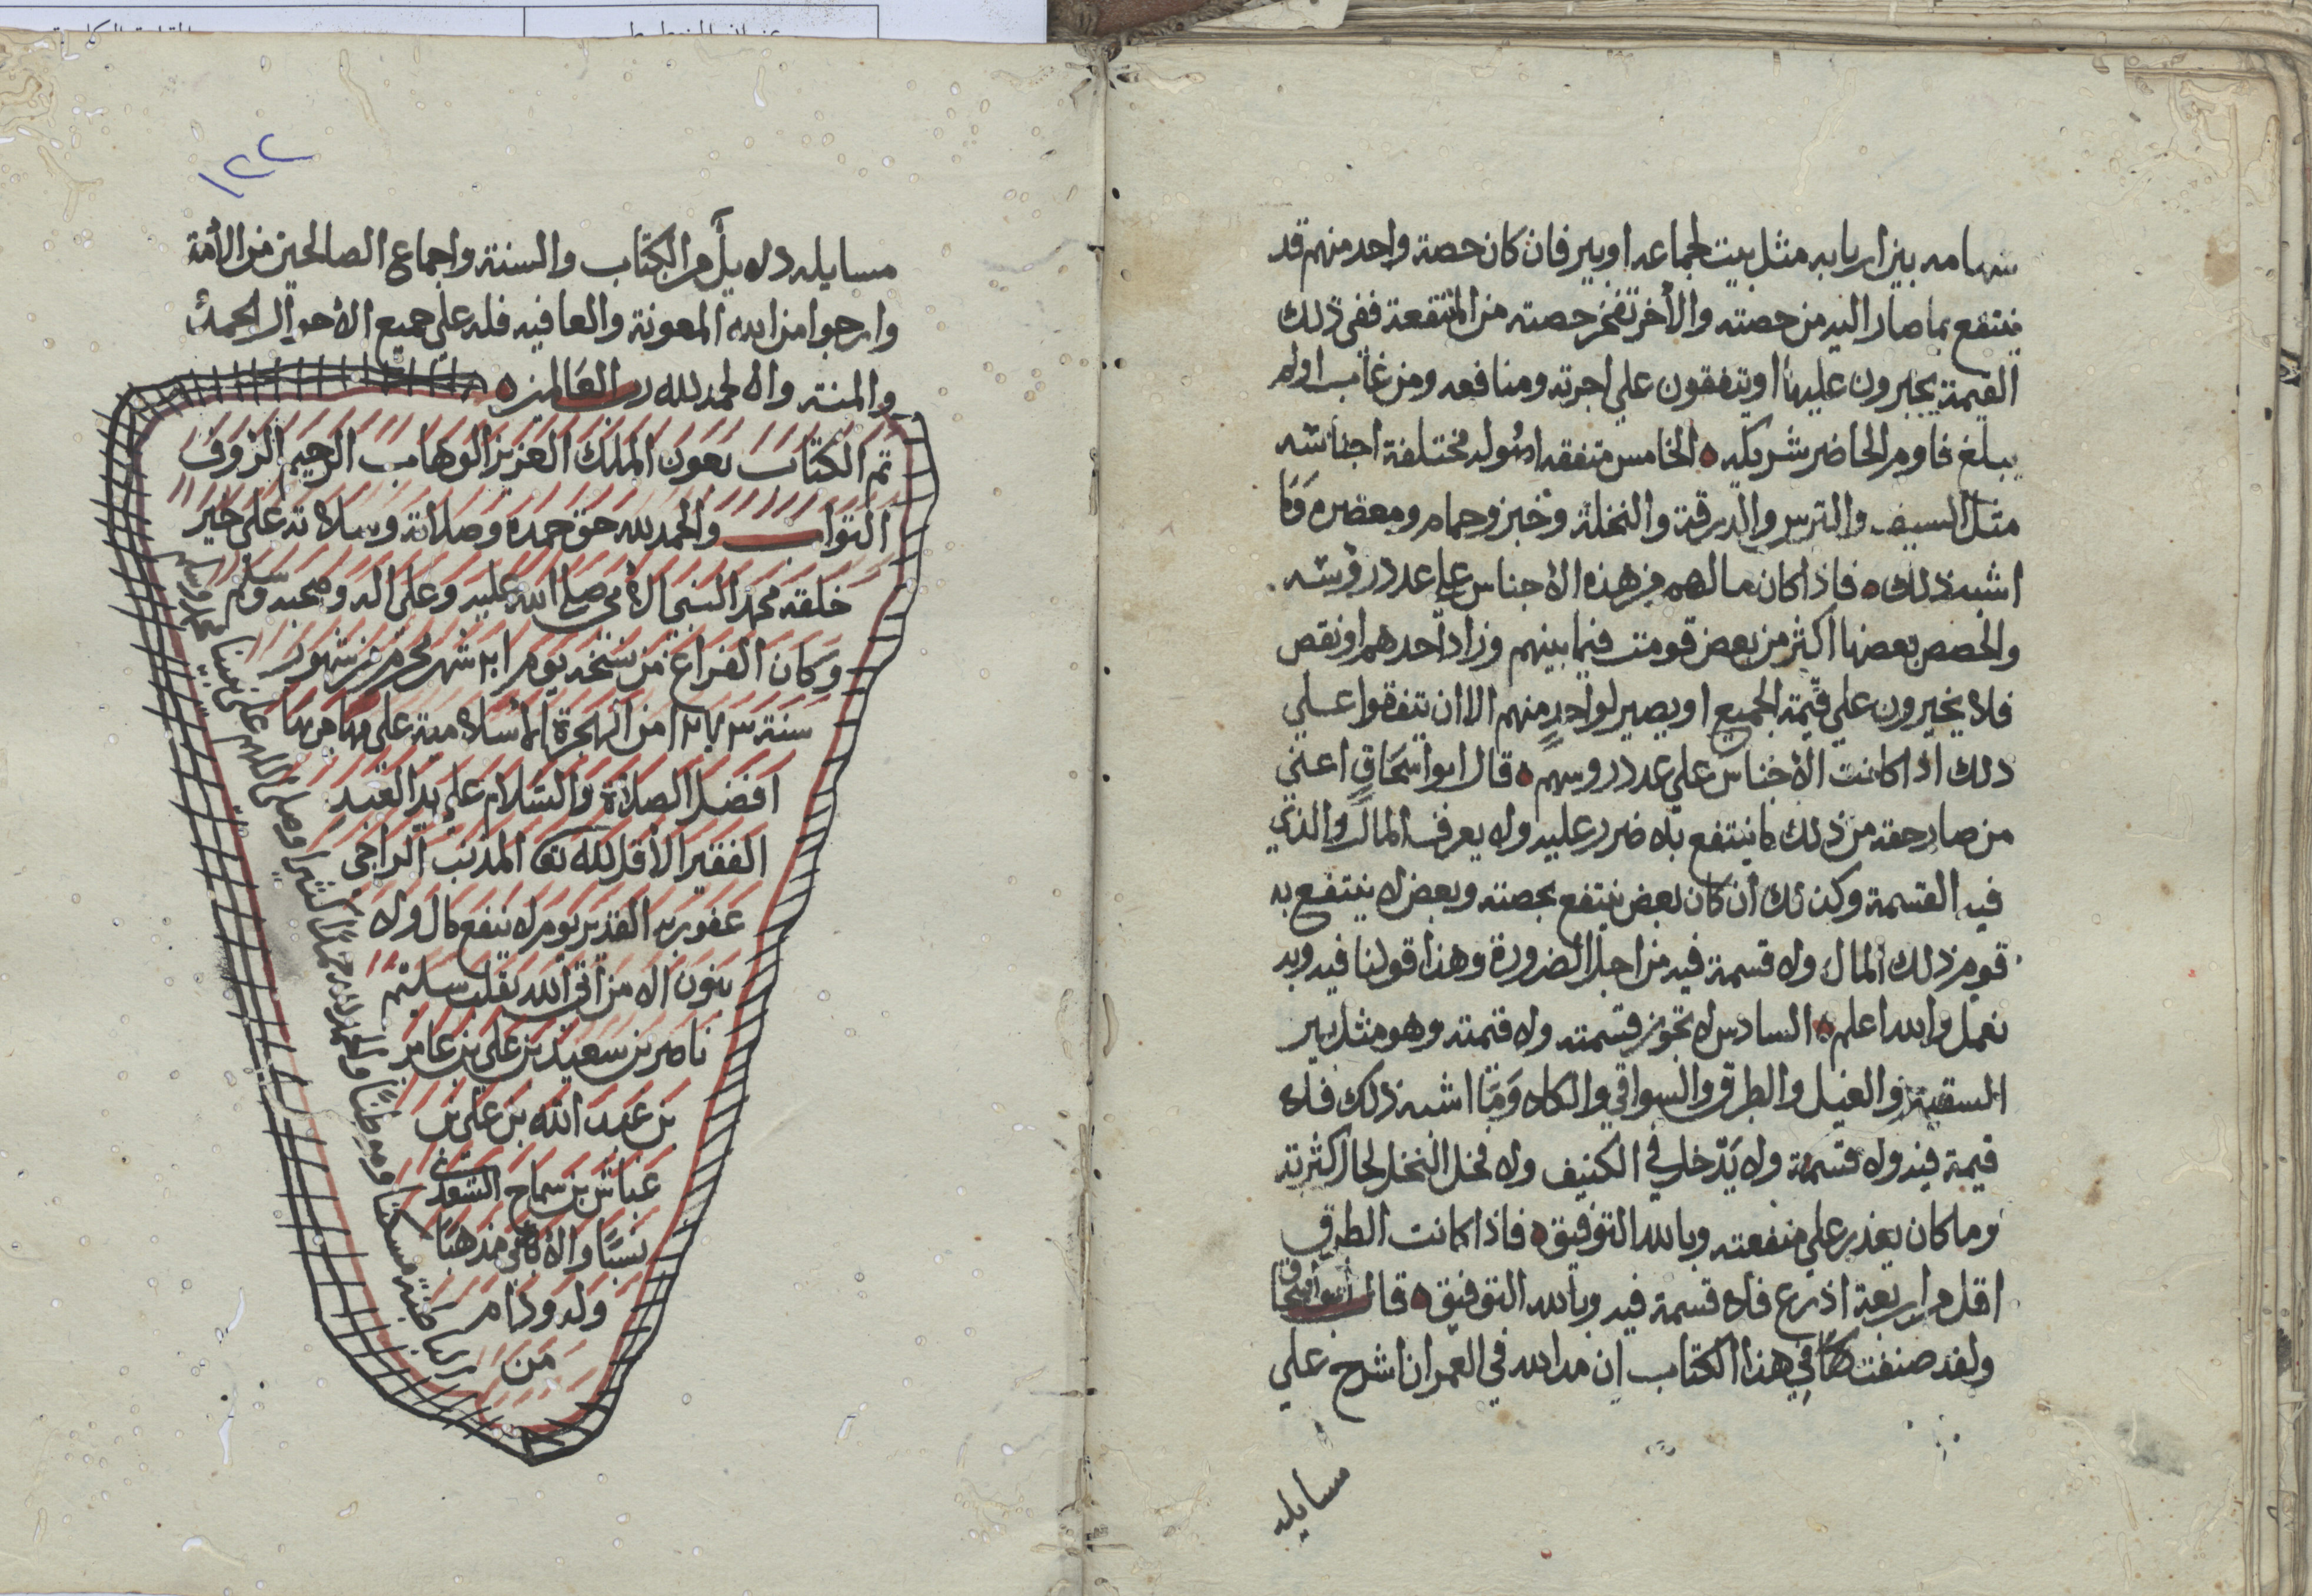 سهامه بين اربابه مثل بيت لجماعه او بير فان كان حصة واحد منهم قد
ينتفع بما صار اليه من حصته والأخر تفخر حصته من المنتفعة ففي ذلك
القيمة يجبرون عليها او يتفقون على اجرته ومنافعه ومن غاب او لم
يبلغ قاوم الحاضر شريكه الخامس متفقه اصوله مختلفة اجناسه
مثل السيف والترس والدرقة والنخلة وخبز وحمام ومعصره وما
اشبه ذلك فاذا كان مالهم من هذه الاجناس على عدد روسه
والحصص بعضها اكثر من بعض قومت فيما بينهم وزاد احدهم او نقص
فلا يخيرون على قيمة الجميع او يصير لواحد منهم الا ان يتفقوا على
ذلك اذا كانت الأجناس على عدد روسهم قال ابو اسحاق اعني
من صار حقه من ذلك ما ينتفع به لا ضرر عليه ولا يعرف المال والذي
فيه القسمة وكذلك ان كان بعض ينتفع بحصته وبعض لا ينتفع به
قوم ذلك المال ولا قسمة فيه من اجل الضرورة وهذا قولنا فيه وبه
نعمل والله اعلم السادس لا تجوز قسمته ولا قيمته وهو مثل بير
السقية والغيل والطرق والسواقي والكلاء وما اشبه ذلك فلا
قيمة فيه ولا قسمة ولا يدخل في الكنيف ولا فحل النخل لحال كثرته
وما كان يعذر على منفعته وبالله التوفيق فاذا كانت الطرق
اقل من اربعة اذرع فلا قسمة فيه وبالله التوفيق قال ابو اسحاق
ولقد صنفت كتابي هذا الكتاب ان مد الله في العمر ان اشرح على
مسايله
١٢٢
مسايله دلايل من الكتاب والسنة واجماع الصالحين من الأمة
وارجوا من الله المعونة والعافيه فله على جميع الاحوال الحمد
والمنته والحمد لله رب العالمين
تم الكتاب بعون الملك العزيز الوهاب الرحيم الروف
التواب والحمد لله حق حمده وصلاته وسلامه على خير
خلقه محمد النبي الامي صلى الله عليه وعلى اله وصحبه وسلم
وكان الفراغ من نسخه يوم شهر محرم من شهور
سنة من الهجرة الاسلامية على مهاجرها
افضل الصلاة والسلام على يد العبد
الفقير الأقل لله تعا المذنب الراجي
عفو ربه القدير يوم لا ينفع مال ولا
بنون الا من اتى الله بقلب سليم
ناصر بن سعيد بن علي بن عامر
بن عبد الله بن علي بن
عباش بن سماح السعدي
نسبا والأباضي مذهبا
ولد ودام
من